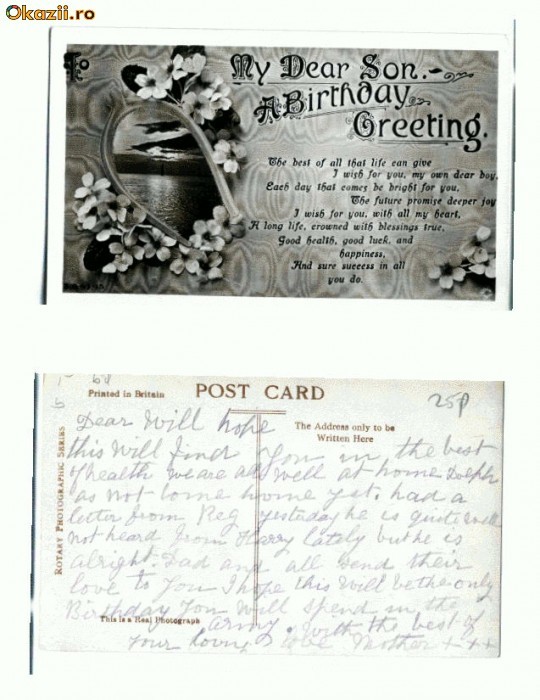 Okazii.ro
To
My Dear Son.-
A Birthday
Greeting.
The best of all that life can give
I wish for you, my own dear boy,
Each day that comes be bright for you,
The future promise deeper joy
I wish for you, with all my heart,
A long life, crowned with blessings true,
Good health, good luck, and
happiness,
And sure success in all
you do.
Printed in Britain
POST CARD
25p
The Address only to be
Written Here
ROTARY PHOTOGRAPHIC SERIES
Dear Will hope
this Will find You in the best
of health We are all Well at home Dolph
as not Come home yet. had a
letter from Reg yesterday he is quite well
not heard from Harry lately but he is
alright. Dad and all send their
love to You I hope this Will be the only
Birthday You Will spend in the
This is a Real Photograph
army. With the best of
Your loving love Mother +++